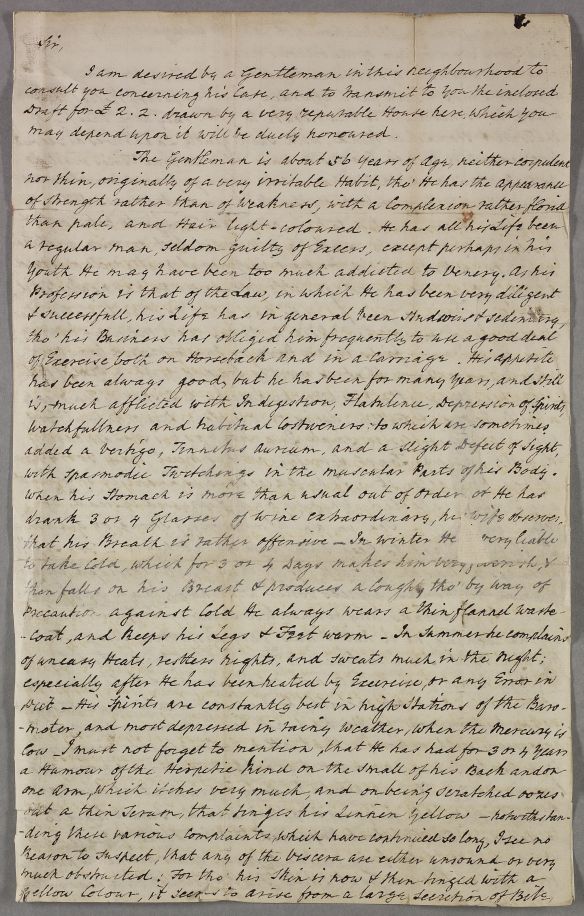 Sir,
I am desired by a Gentleman in this neighbourhood to
consult you concerning his Case, and to transmit to you the inclosed
Draft for £ 2. 2. drawn by a very reputable House here, which you
may depend upon it will be duely honoured.
The Gentleman is about 56 years of Age, neither corpulent
nor thin, originally of a very irritable Habit, tho' He has the appearance
of Strength rather than of weakness, with a Complexion rather florid
than pale, and Hair light-coloured. He has all his Life been
a regular man, seldom guilty of Excess, except perhaps in his
youth He may have been too much addicted to Venery. As his
Profession is that of the Law, in which He has been very diligent
& successfull, his Life has in general been studious & sedentary,
tho' his Business has obliged him frequently to use a good deal
of Exercise, both on Horseback and in a Carriage. His appetite
has been always good, but he has been for many years, and still
is, much afflicted with Indigestion, Flatulence, Depression of Spirits,
watchfullness and habitual costiveness: to which are sometimes
added a vertigo, Tinnitus Aurium, and a slight Defect of Sight,
with spasmodic Twitchings in the muscular Parts of his Body.
When his Stomach is more than usual out of order or He has
drank 3 or 4 Glasses of wine extraordinary, his wife observes,
that his Breath is rather offensive – In winter He very liable
to take Cold, which for 3 or 4 Days makes him very &
then falls on his Breast & produces a Cough, tho' by way of
Precaution against Cold He always wears a thin flannel waste-
-coat, and keeps his Legs & Feet warm – In Summer he complains
of uneasy Heats, restless nights, and sweats much in the night;
especially after He has been heated by Exercise, or any Error in
Diet – His Spirits are constantly best in high Stations of the Baro-
-meter, and most depressed in rainy weather, when the Mercury is
low – I must not forget to mention, that He has had for 3 or 4 years
a Humour of the Herpetic kind on the small of his Back and on
one Arm, which itches very much, and on being scratched oozes
out a thin Serum, that tinges his Linnen yellow – notwithstan-
-ding these various complaints, which have continued so long, I see no
Reason to suspect, that any of the viscera are either unsound or very
much obstructed: For tho' his Skin is now & then tinged with a
yellow Colour, it seems to arise from a large Secretion of Bile,